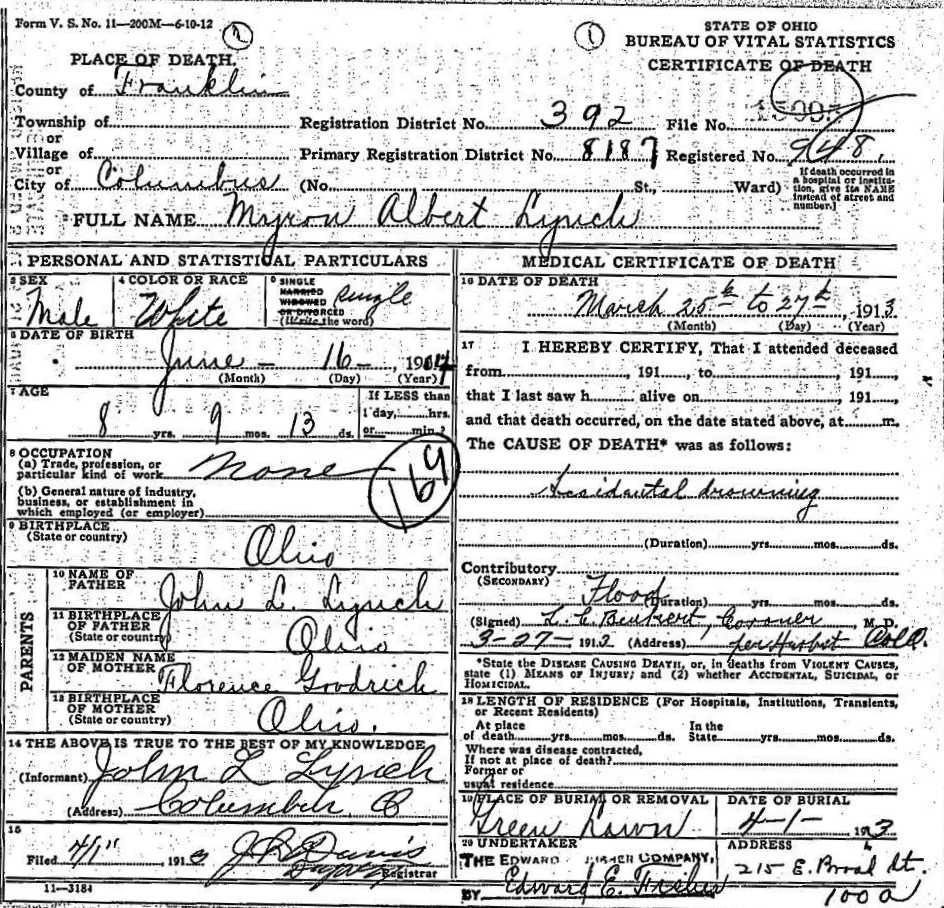 Form V. S. No. 11—200M—6-10-12
2
1
STATE OF OHIO
BUREAU OF VITAL STATISTICS
CERTIFICATE OF DEATH
PLACE OF DEATH.
County of Franklin
Township of
or
Village of
or
City of Columbus
Registration District No. 392 File No.
Primary Registration District No. 8187 Registered No. 948
(No. St., Ward)
If death occurred in a hospital or institution, give its NAME instead of street and number.]
2 FULL NAME Myron Albert Lynch
PERSONAL AND STATISTICAL PARTICULARS
3 SEX
Male
4 COLOR OR RACE
White
5 SINGLE
MARRIED
WIDOWED
OR DIVORCED
(Write the word)
Single
6 DATE OF BIRTH
June - 16 - , 1904
(Month) (Day) (Year)
7 AGE
8 yrs. 9 mos. 13 ds.
If LESS than
1 day, hrs.
or min.?
8 OCCUPATION
(a) Trade, profession, or
particular kind of work None
(b) General nature of industry,
business, or establishment in
which employed (or employer)
164
9 BIRTHPLACE
(State or country)
Ohio
PARENTS
10 NAME OF
FATHER
John L. Lynch
11 BIRTHPLACE
OF FATHER
(State or country)
Ohio
12 MAIDEN NAME
OF MOTHER
Florence Goodrich
13 BIRTHPLACE
OF MOTHER
(State or country)
Ohio.
14 THE ABOVE IS TRUE TO THE BEST OF MY KNOWLEDGE
(Informant) John L Lynch
(Address) Columbus O
15
Filed 4/1", 191 J B Davis
Registrar
11—3184
MEDICAL CERTIFICATE OF DEATH
16 DATE OF DEATH
March 25th to 27th, 1913
(Month) (Day) (Year)
17 I HEREBY CERTIFY, That I attended deceased
from , 191 , to , 191 ,
that I last saw h alive on , 191 ,
and that death occurred, on the date stated above, at m.
The CAUSE OF DEATH* was as follows:
Accidental drowning
(Duration) yrs. mos. ds.
Contributory
(SECONDARY)
Flood
(Duration) yrs. mos. ds.
(Signed) Coroner, M. D.
3-27-, 1913 (Address)
*State the DISEASE CAUSING DEATH, or, in deaths from VIOLENT CAUSES,
state (1) MEANS OF INJURY; and (2) whether ACCIDENTAL, SUICIDAL, or
HOMICIDAL.
18 LENGTH OF RESIDENCE (For Hospitals, Institutions, Transients,
or Recent Residents)
At place
of death yrs. mos. ds.
In the
State yrs. mos. ds.
Where was disease contracted,
If not at place of death?
Former or
usual residence
19 PLACE OF BURIAL OR REMOVAL
Green Lawn
DATE OF BURIAL
4-1- 1913
20 UNDERTAKER
THE EDWARD FISHER COMPANY,
BY Edward E. Fisher
ADDRESS
215 E. Broad St.
100 a